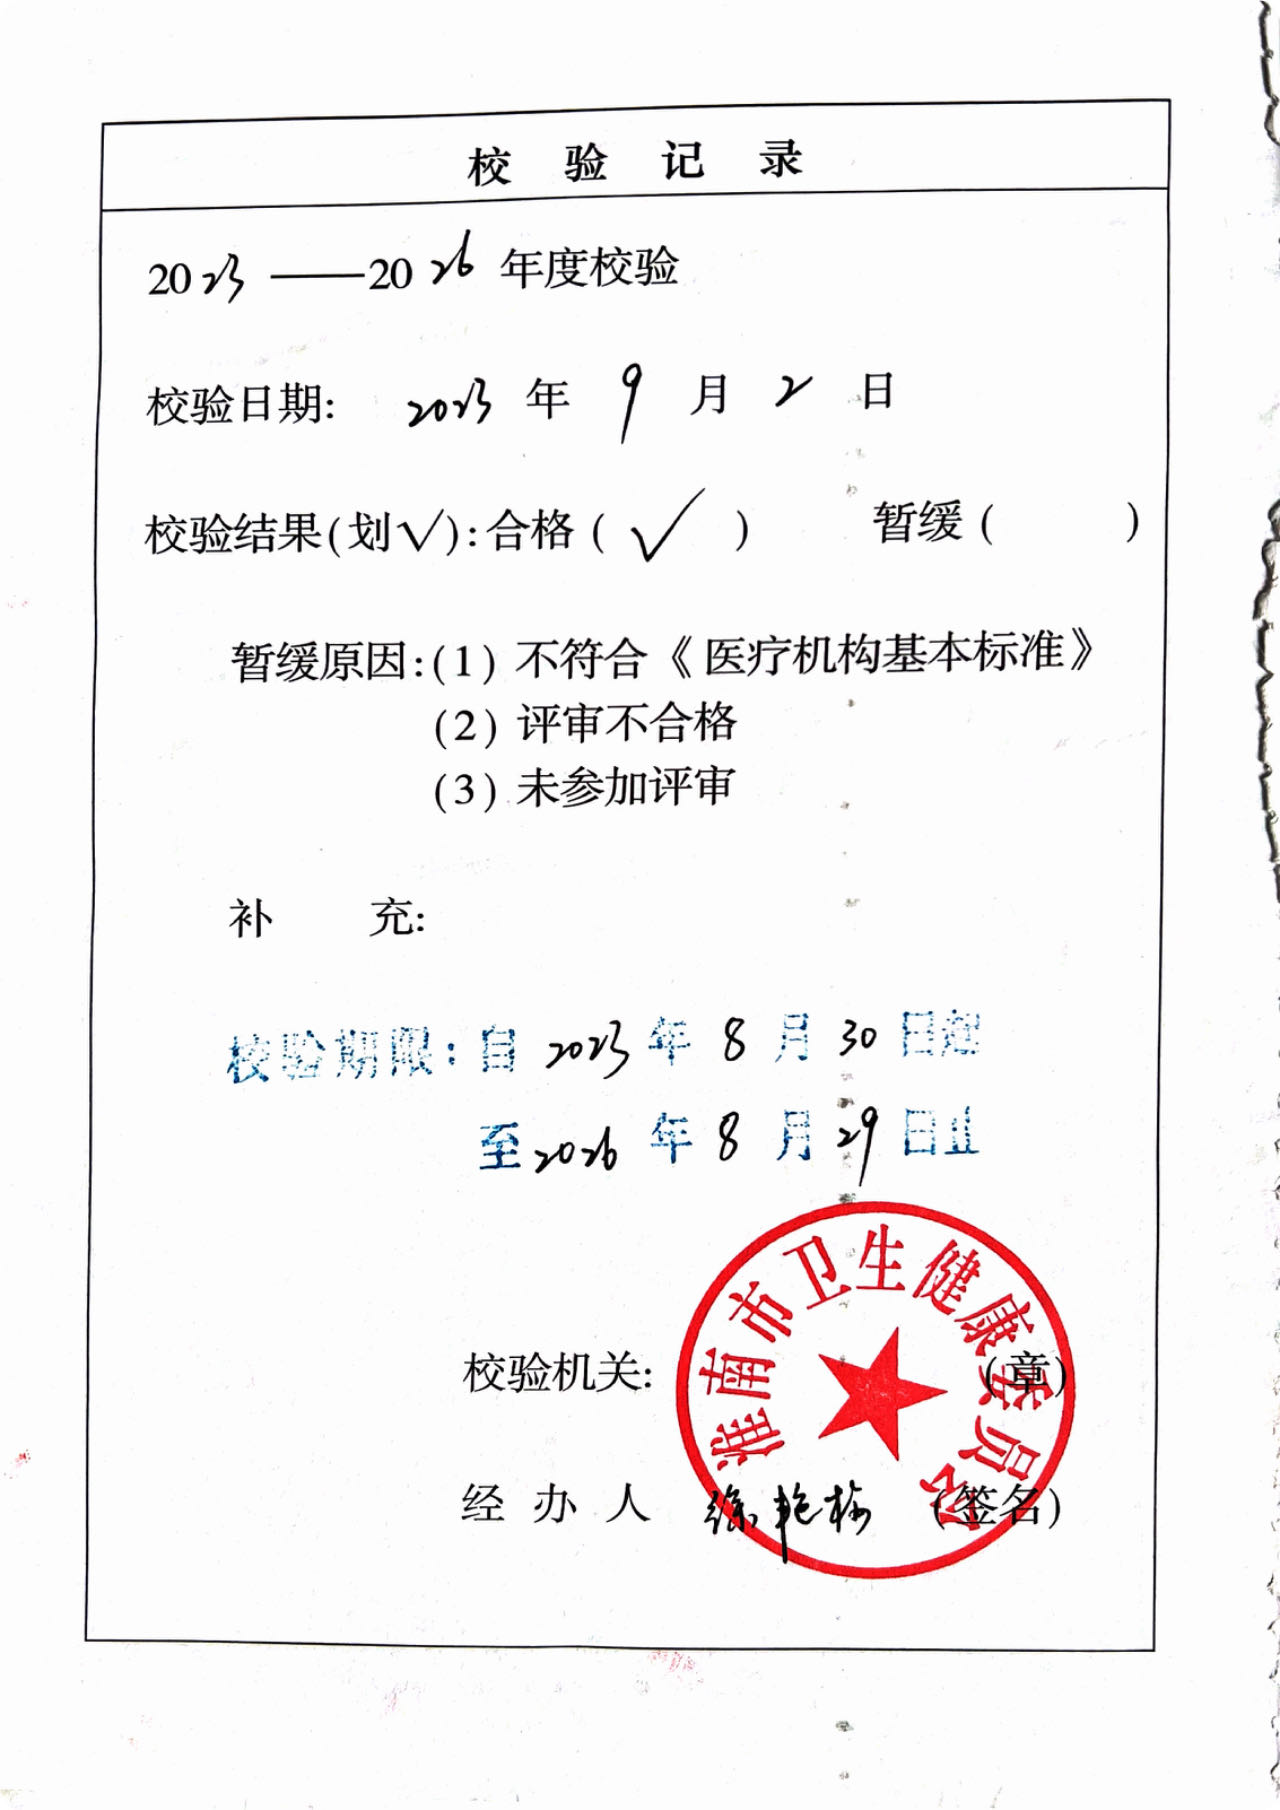 校验记录
2023——2026年度校验
校验日期: 2023年9月2日
校验结果(划√):合格(√) 暂缓( )
暂缓原因:(1)不符合《医疗机构基本标准》
(2)评审不合格
(3)未参加评审
补 充:
校验期限:自2023年8月30日起
至2026年8月29日止
淮南市卫生健康委员会
校验机关: (章)
经办人 徐艳梅 (签名)